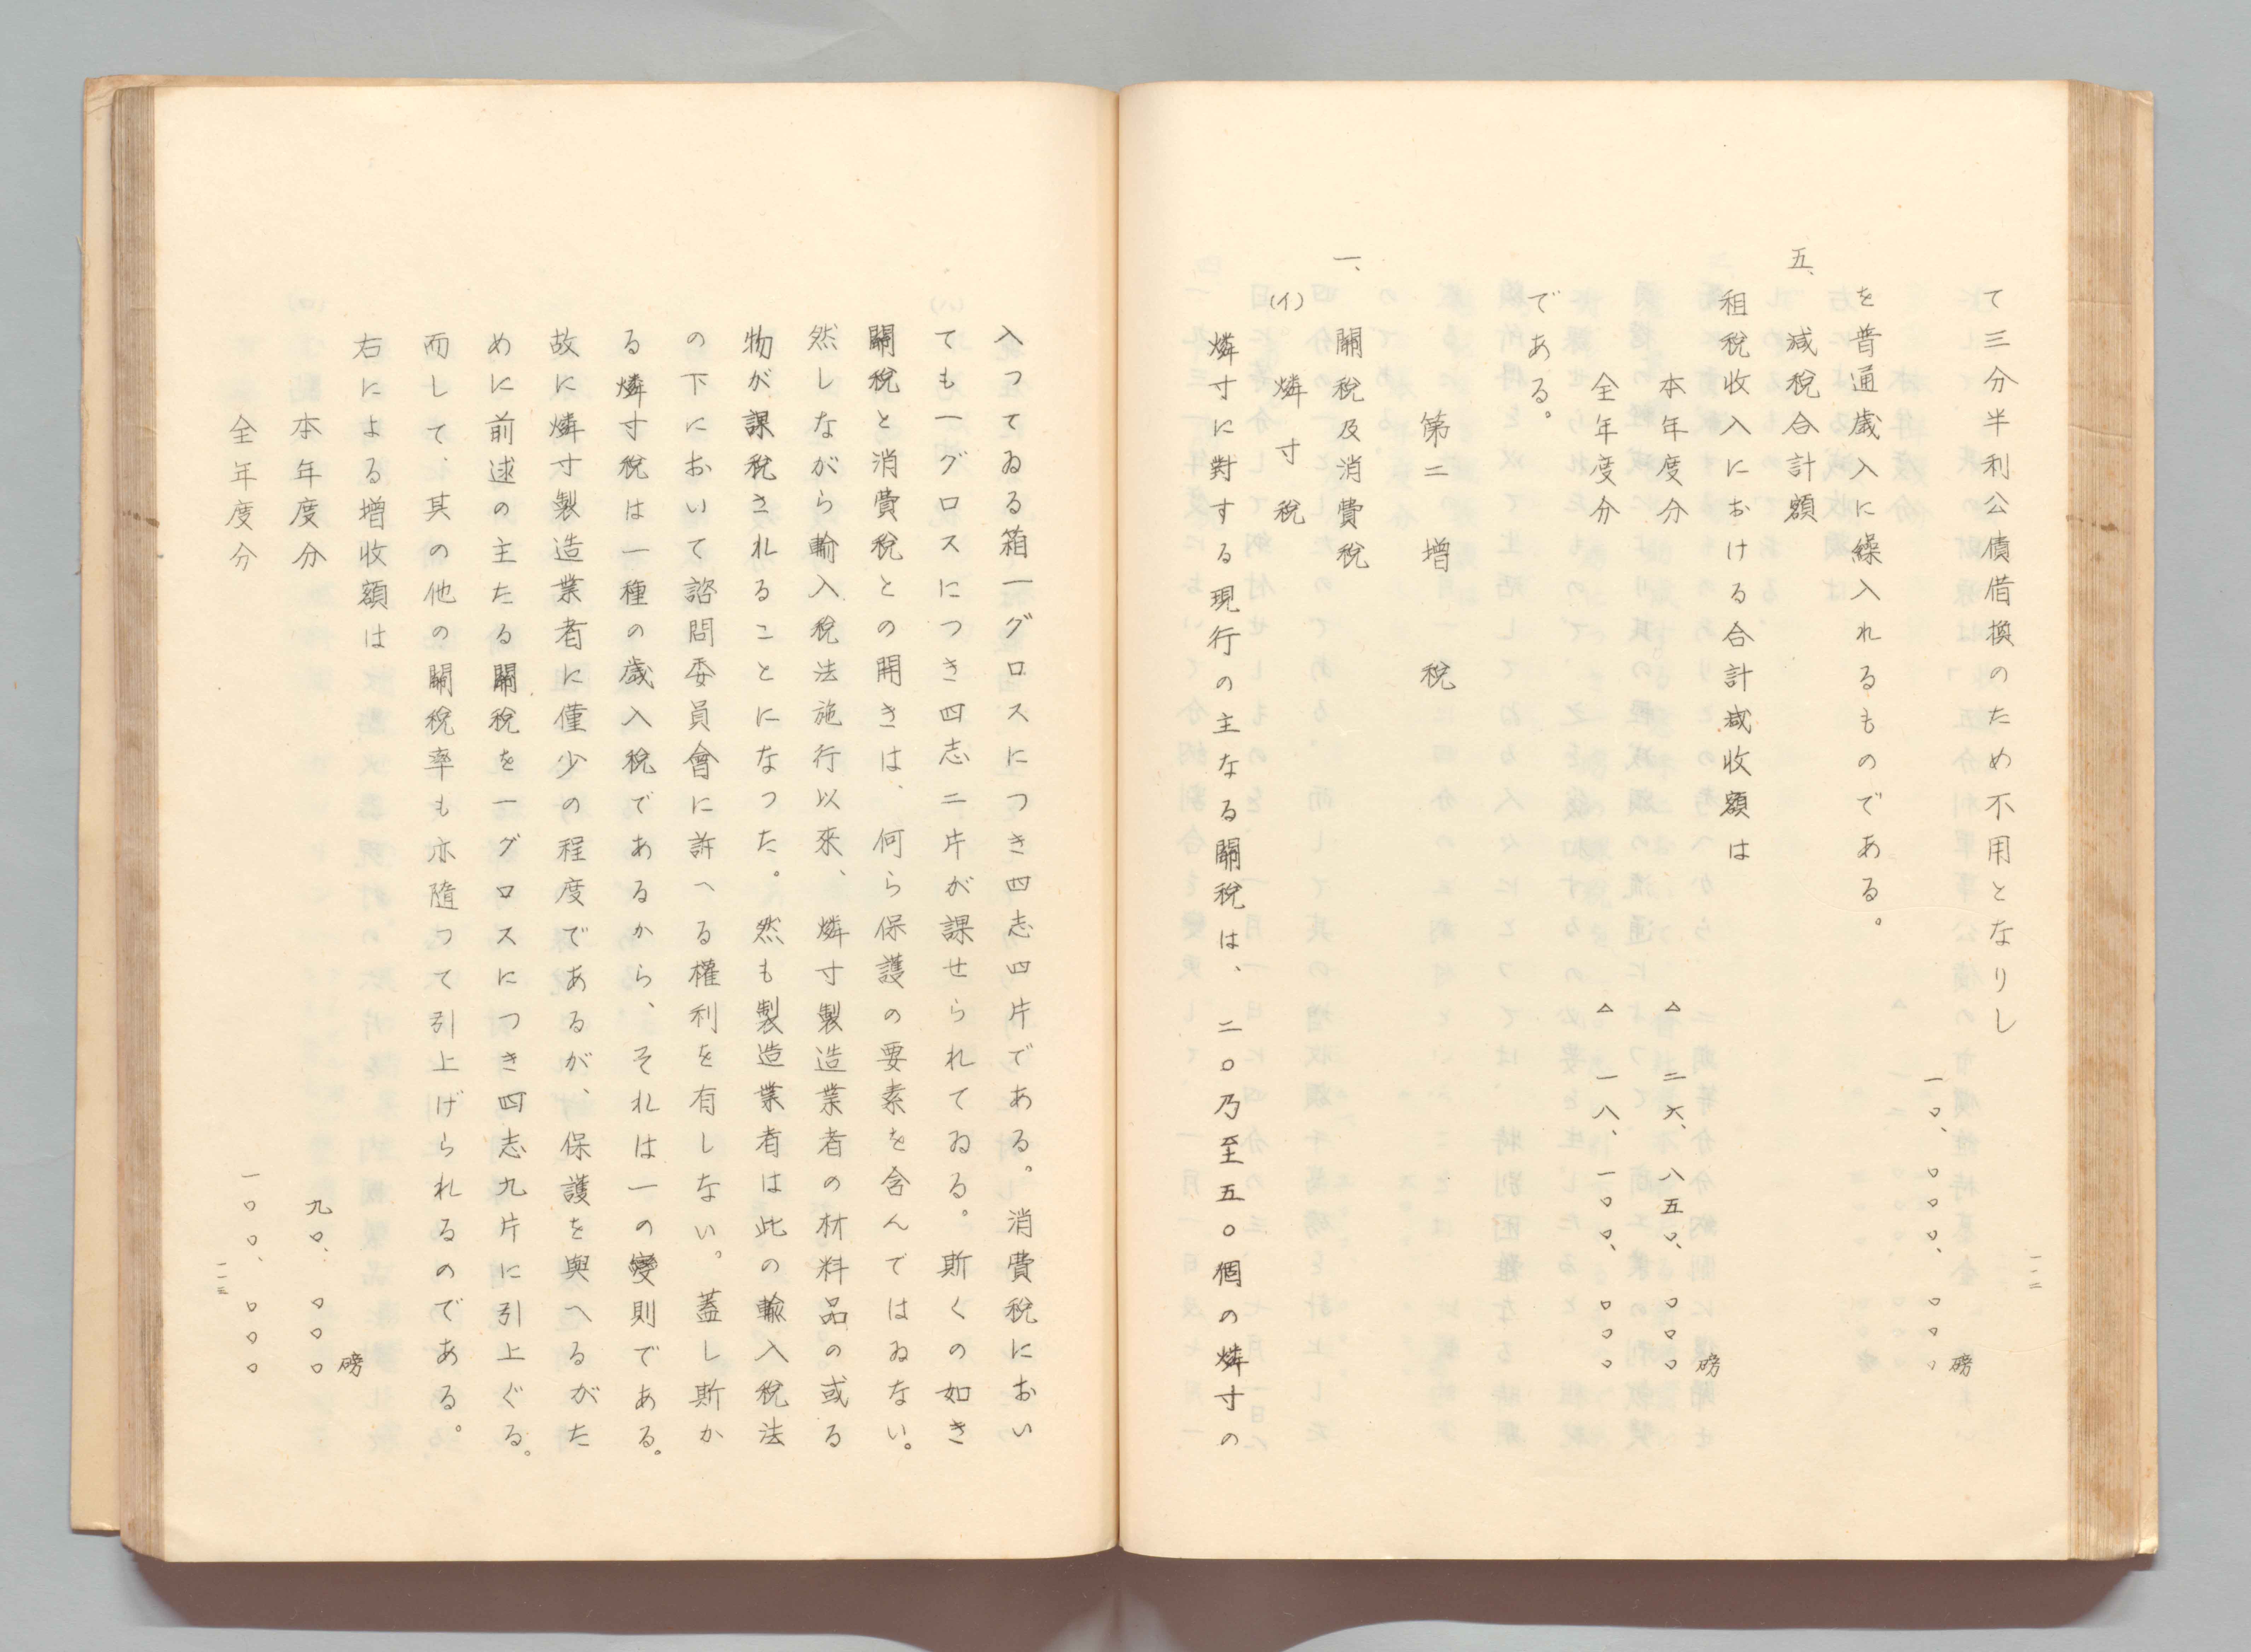 て三分半利公債借換のため不用となりし
一〇、〇〇〇、〇〇〇磅
を普通歲入に繰入れるものである。
五、減稅合計額
租稅收入における合計減收額は
本年度分 △二六、八五〇、〇〇〇磅
全年度分 △一八、一〇〇、〇〇〇
である。
第二 增 稅
一、關稅及消費稅
(イ) 燐寸稅
燐寸に對する現行の主なる關稅は、二〇乃至五〇個の燐寸の
一一二
入つてゐる箱一グロスにつき四志四片である。消費稅におい
ても一グロスにつき四志二片が課せられてゐる。斯くの如き
關稅と消費稅との開きは、何ら保護の要素を含んではゐない。
然しながら輸入稅法施行以來、燐寸製造業者の材料品の或る
物が課稅されることになつた。然も製造業者は此の輸入稅法
の下において諮問委員會に訴へる權利を有しない。蓋し斯か
る燐寸稅は一種の歲入稅であるから、それは一の變則である。
故に燐寸製造業者に僅少の程度であるが、保護を與へるがた
めに前逑の主たる關稅を一グロスにつき四志九片に引上ぐる。
而して、其の他の關稅率も亦隨つて引上げられるのである。
右による增收額は
本年度分 九〇、〇〇〇磅
全年度分 一〇〇、〇〇〇
一一三